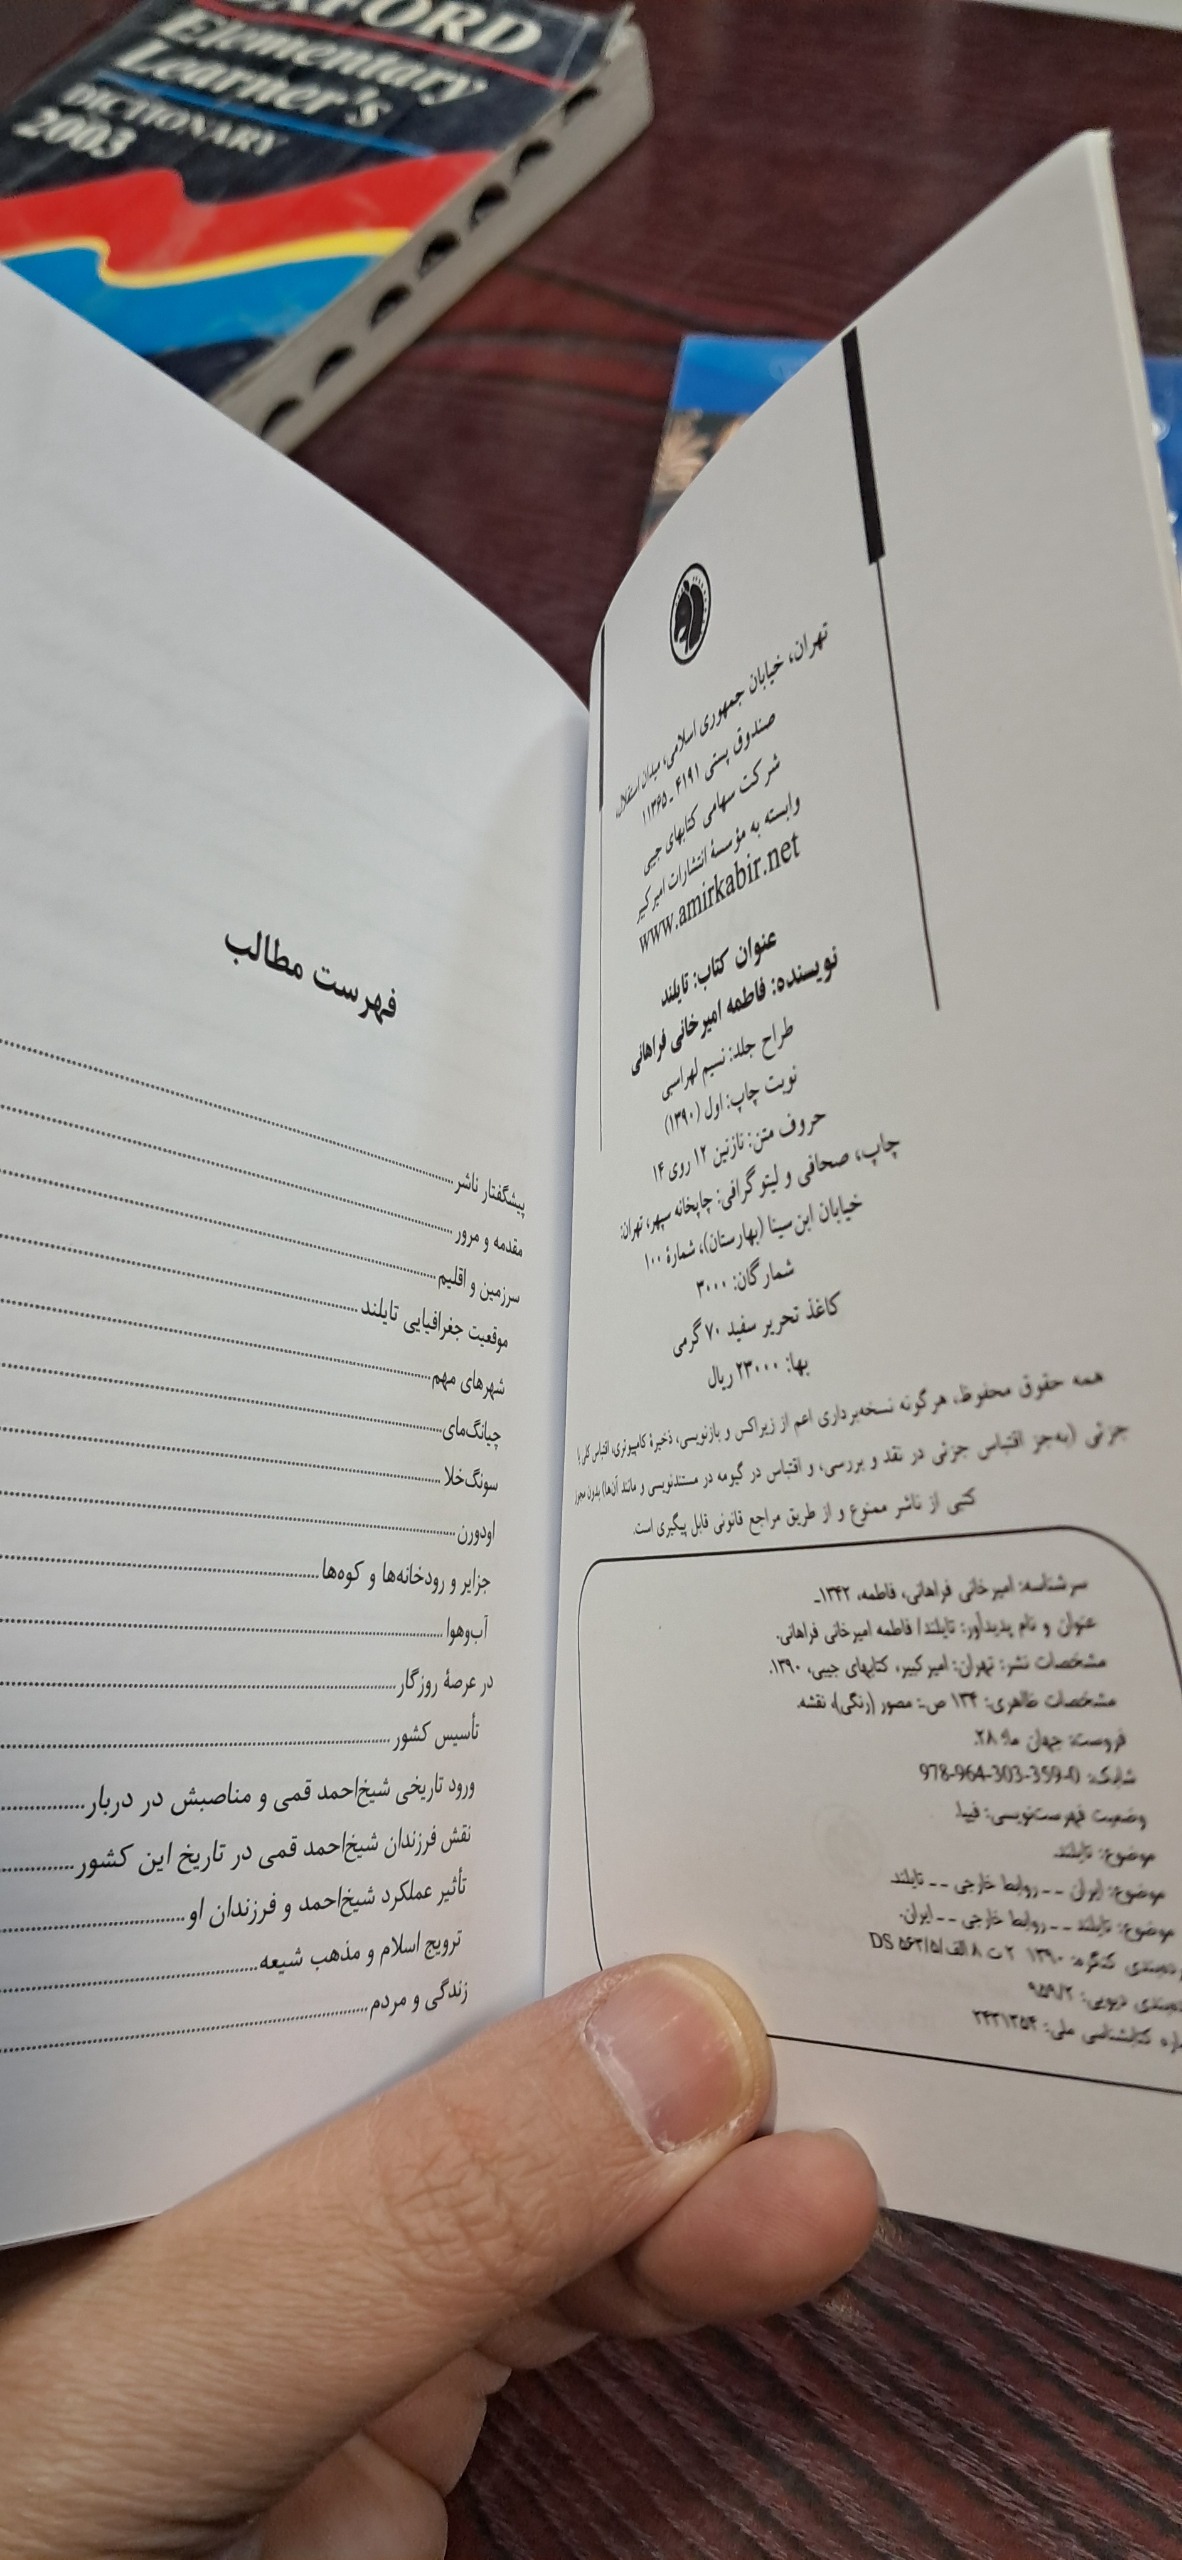 OXFORD
Elementary
Learner's
DICTIONARY
2003
تهران، خیابان جمهوری اسلامی، میدان استقلال،
صندوق پستی ۴۱۹۱ ـ ۱۱۳۶۵
شرکت سهامی کتابهای جیبی
وابسته به مؤسسهٔ انتشارات امیرکبیر
www.amirkabir.net
عنوان کتاب: تایلند
نویسنده: فاطمه امیرخانی فراهانی
طراح جلد: نسیم لهراسبی
نوبت چاپ: اول (۱۳۹۰)
حروف متن: نازنین ۱۲ روی ۱۴
چاپ، صحافی و لیتوگرافی: چاپخانه سپهر، تهران:
خیابان ابن‌سینا (بهارستان)، شمارهٔ ۱۰۰
شمارگان: ۳۰۰۰
کاغذ تحریر سفید ۷۰ گرمی
بها: ۲۳۰۰۰ ریال
همه حقوق محفوظ، هرگونه نسخه‌برداری اعم از زیراکس و بازنویسی، ذخیرهٔ کامپیوتری، اقتباس کلی یا
جزئی (به‌جز اقتباس جزئی در نقد و بررسی، و اقتباس در گیومه در مستندنویسی و مانند آن‌ها) بدون مجوز
کتبی از ناشر ممنوع و از طریق مراجع قانونی قابل پیگیری است.
سرشناسه: امیرخانی فراهانی، فاطمه، ۱۳۴۲ـ
عنوان و نام پدیدآور: تایلند/ فاطمه امیرخانی فراهانی.
مشخصات نشر: تهران: امیرکبیر، کتابهای جیبی، ۱۳۹۰.
مشخصات ظاهری: ۱۳۴ ص.: مصور (رنگی)، نقشه.
فروست: جهان ما؛ ۲۸.
شابک: 978-964-303-359-0
وضعیت فهرست‌نویسی: فیپا.
موضوع: تایلند.
موضوع: ایران -- روابط خارجی -- تایلند.
موضوع: تایلند -- روابط خارجی -- ایران.
کنگره: ۱۳۹۰ ۲ ت ۸ الف/۵ DS ۵۶۳/
دیویی: ۹۵۹/۳
کتابشناسی ملی: ۲۴۳۱۳۵۴
فهرست مطالب
پیشگفتار ناشر
مقدمه و مرور
سرزمین و اقلیم
موقعیت جغرافیایی تایلند
شهرهای مهم
چیانگ‌مای
سونگ‌خلا
اودورن
جزایر و رودخانه‌ها و کوه‌ها
آب‌وهوا
در عرصهٔ روزگار
تأسیس کشور
ورود تاریخی شیخ‌احمد قمی و مناصبش در دربار
نقش فرزندان شیخ‌احمد قمی در تاریخ این کشور
تأثیر عملکرد شیخ‌احمد و فرزندان او
ترویج اسلام و مذهب شیعه
زندگی و مردم